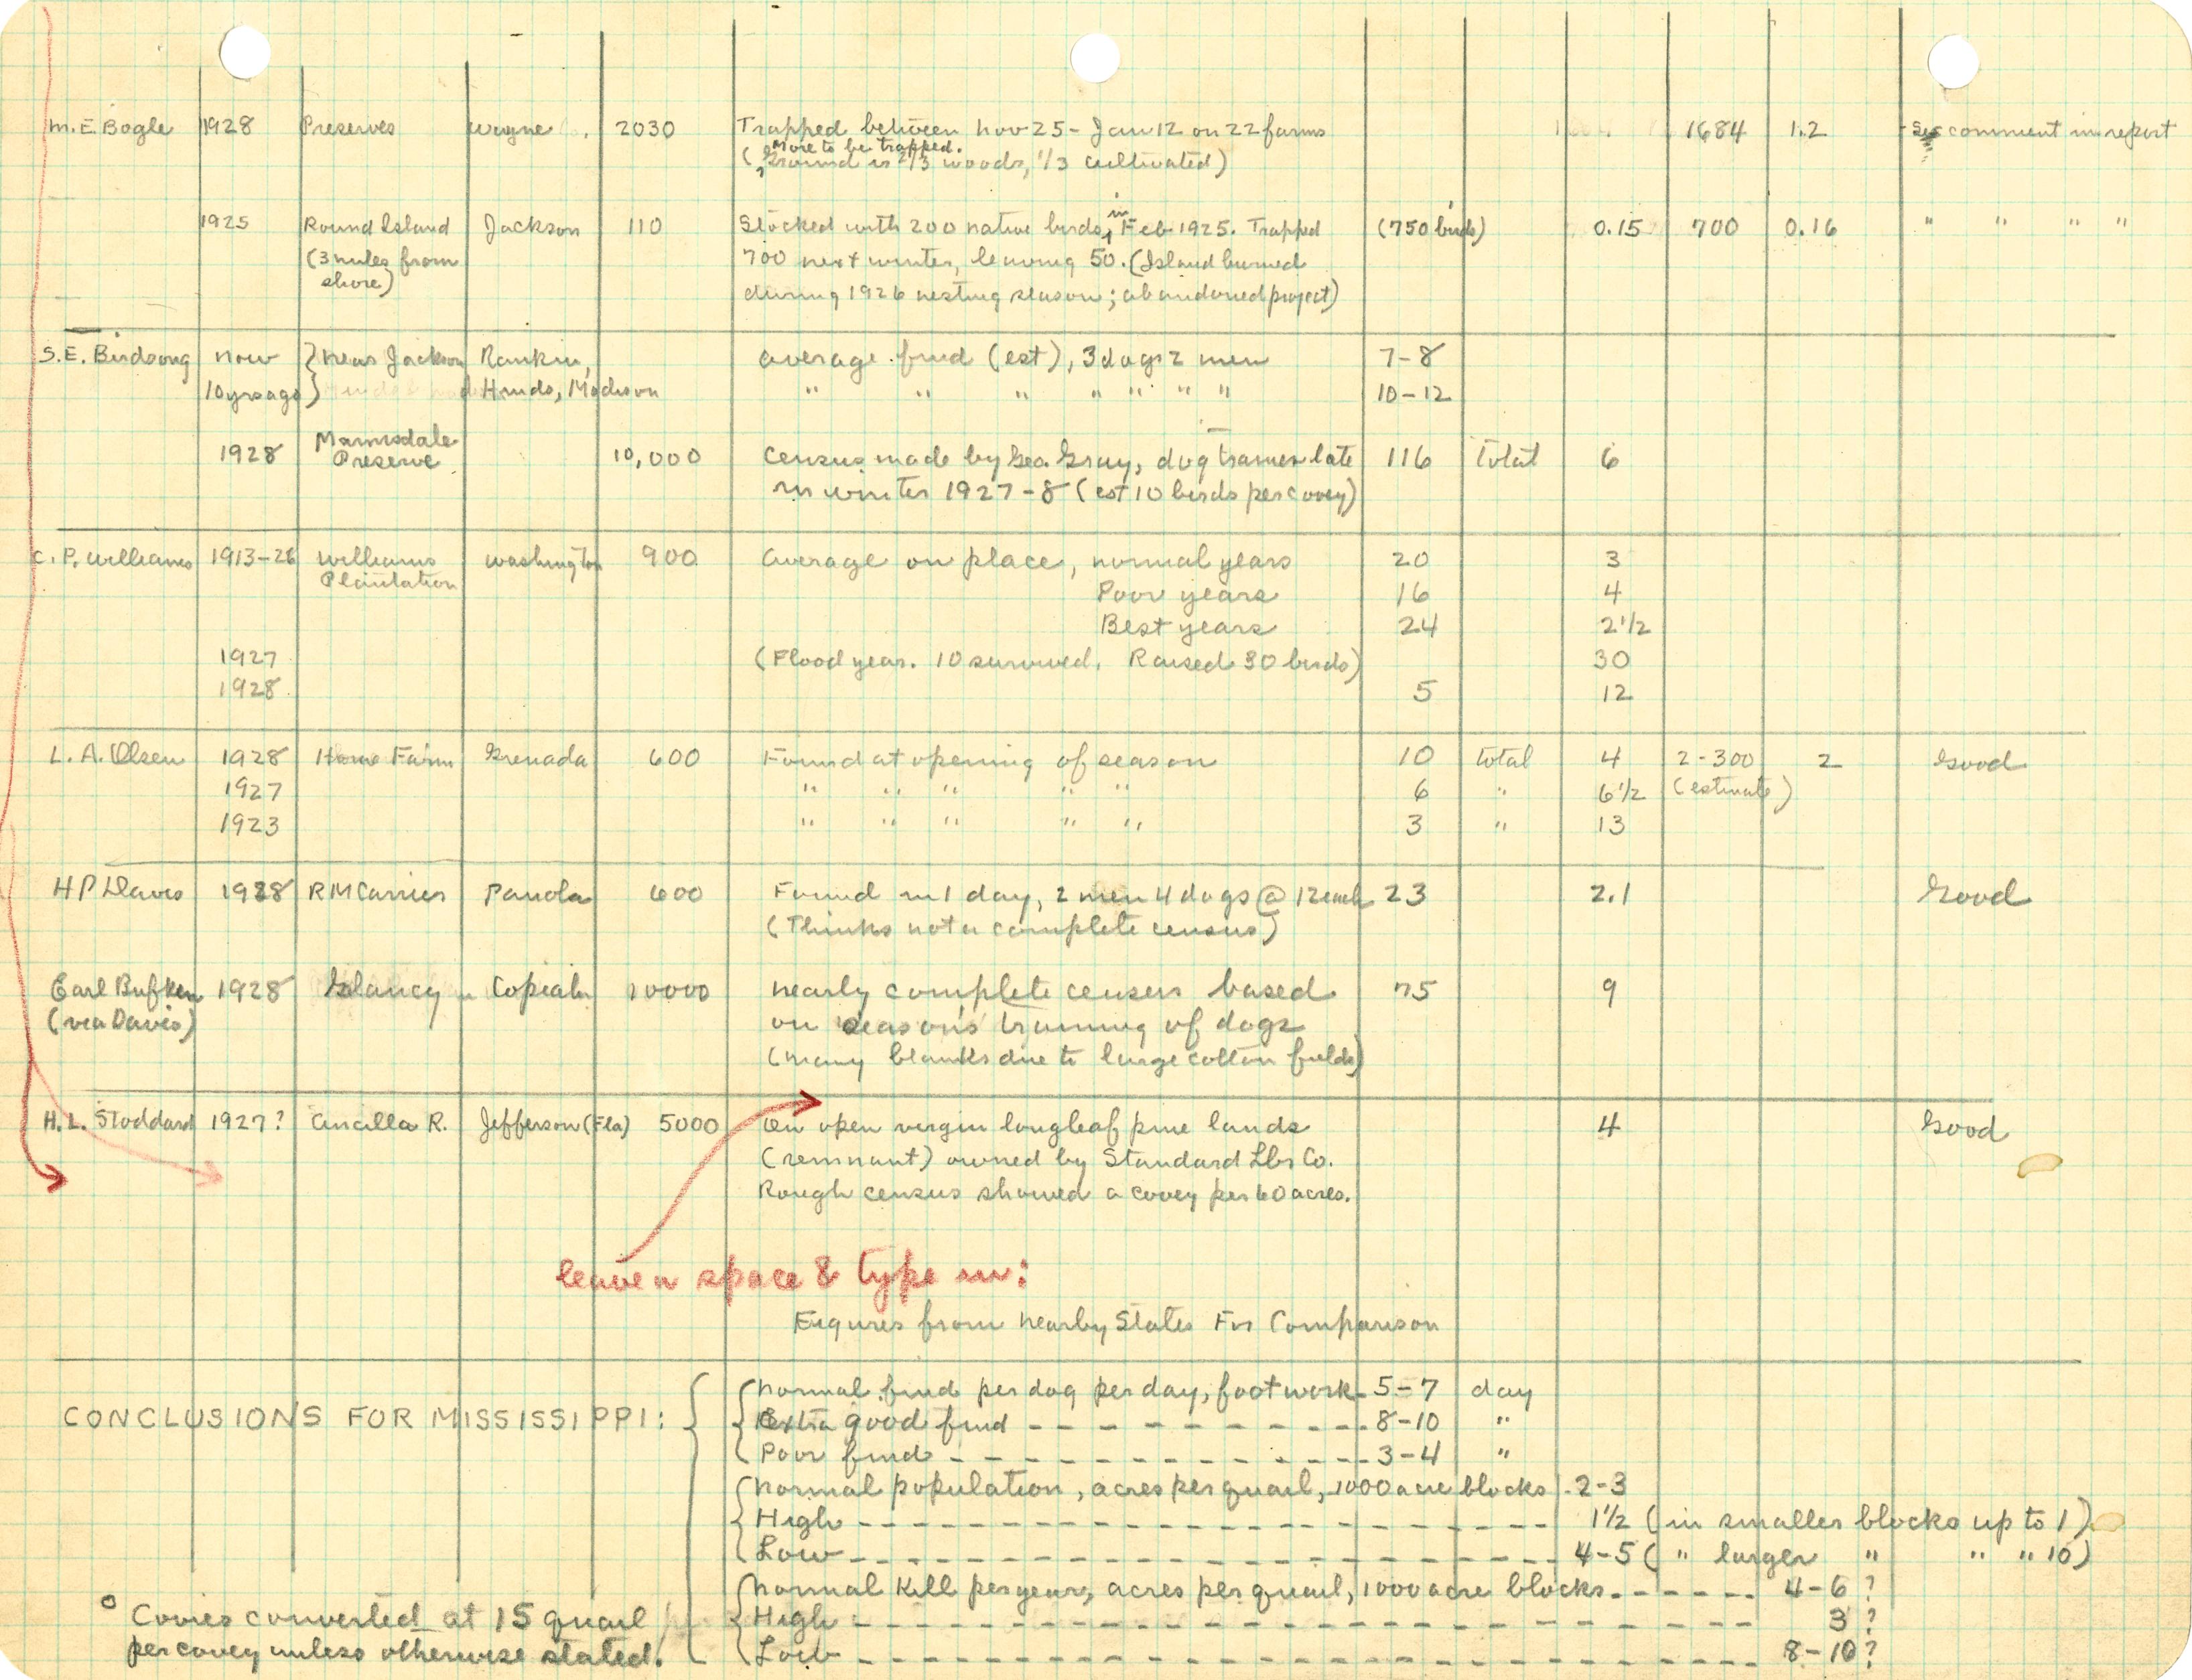 M. E. Bogle 1928 Preserves Wayne 2030 Trapped between Nov 25 - Jan 12 on 22 farms 1684 1.2 See comment in report
More to be trapped.
(Ground is 2/3 woods, 1/3 cultivated)
1925 Round Island Jackson 110 Stocked with 200 native birds in Feb 1925. Trapped (750 birds) 0.15 700 0.16 " " " "
(3 miles from 700 next winter, leaving 50. (Island burned
shore) during 1926 nesting season; abandoned project)
S. E. Birdsong now } Near Jackson Rankin, average find (est), 3 dogs 2 men 7-8
10 yrs ago } Hinds, Madison " " " " " " " 10-12
1928 Mannsdale Preserve 10,000 Census made by Geo. Gray, dog trainer late 116 Total 6
in winter 1927-8 (est 10 birds per covey)
C. P. Williams 1913-26 Williams Washington 900 Average on place, normal years 20 3
Plantation Poor years 16 4
Best years 24 2 1/2
1927 (Flood year. 10 survived. Raised 30 birds) 30
1928 5 12
L. A. Olsen 1928 Home Farm Grenada 600 Found at opening of season 10 total 4 2-300 2 Good
1927 " " " " " 6 " 6 1/2 (estimate)
1923 " " " " " 3 " 13
H P Davis 1928 R M Carrier Panola 600 Found in 1 day, 2 men 4 dogs @ 12 each 23 2.1 Good
(Thinks not a complete census)
Earl Bufkin 1928 Glancy Copiah 10000 nearly complete census based 75 9
(via Davis) on season's training of dogs
(many blanks due to large cotton fields)
H. L. Stoddard 1927? Aucilla R. Jefferson (Fla) 5000 On open virgin longleaf pine lands 4 Good
(remnant) owned by Standard Lbr Co.
Rough census showed a covey per 60 acres.
leave a space & type in:
Figures from Nearby States For Comparison
CONCLUSIONS FOR MISSISSIPPI: Normal find per dog per day, footwork 5-7 day
Extra good find 8-10 "
Poor find 3-4 "
Normal population, acres per quail, 1000 acre blocks 2-3
High 1 1/2 (in smaller blocks up to 1)
Low 4-5 ( " larger " " " 10)
Normal Kill per year, acres per quail, 1000 acre blocks 4-6 ?
High 3 ?
Low 8-10 ?
° Covies converted at 15 quail
per covey unless otherwise stated.